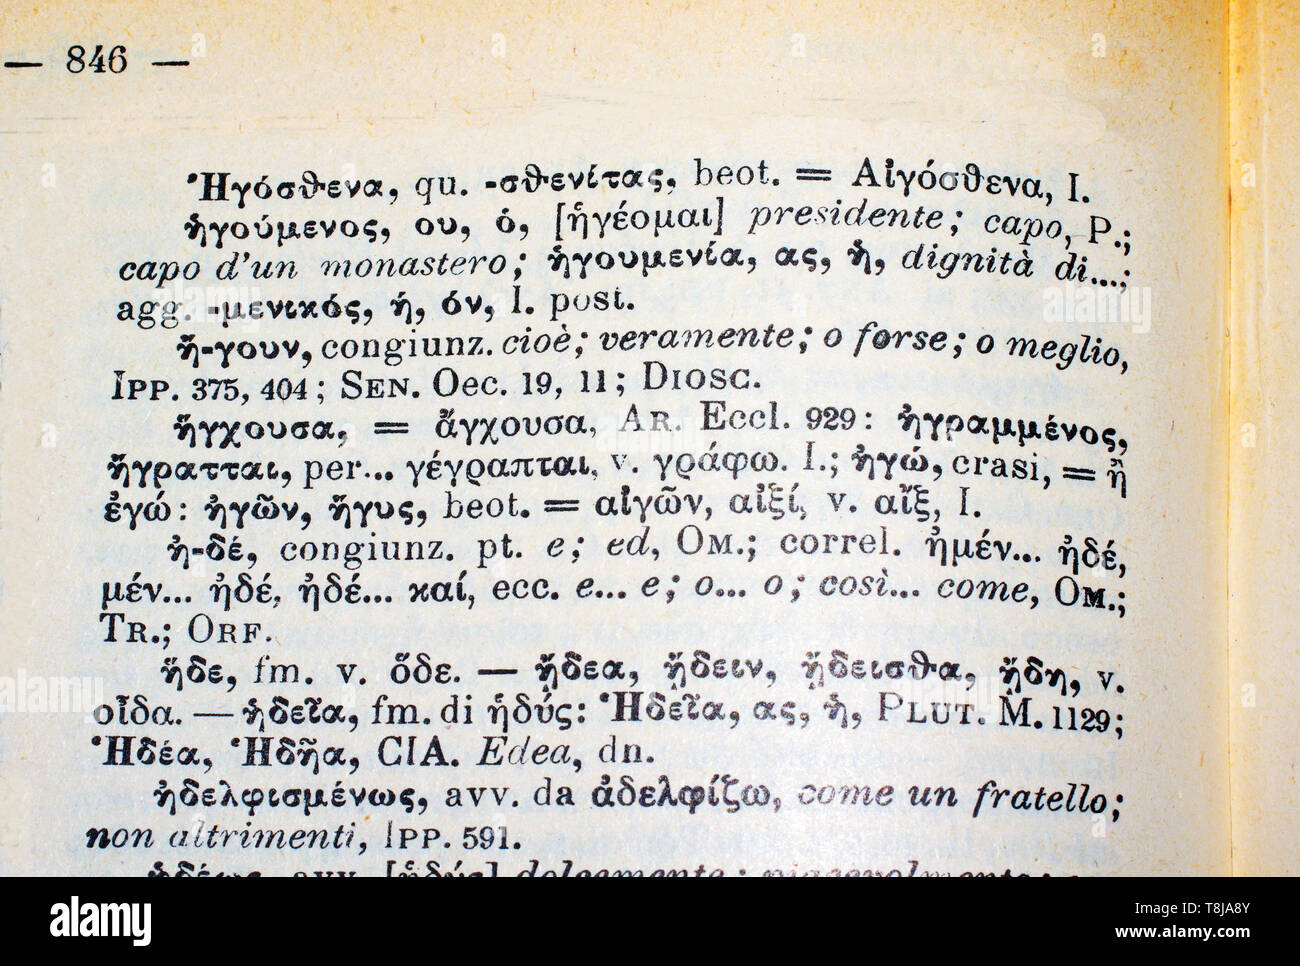 — 846 —
Ἡγόσθενα, qu. -σθενίτας, beot. = Αἰγόσθενα, I.
ἡγούμενος, ου, ὁ, [ἡγέομαι] presidente; capo, P.;
capo d'un monastero; ἡγουμενία, ας, ἡ, dignità di...;
agg. -μενικός, ή, όν, I. post.
ἤ-γουν, congiunz. cioè; veramente; o forse; o meglio,
IPP. 375, 404; SEN. Oec. 19, 11; DIOSC.
ἤγχουσα, = ἄγχουσα, AR. Eccl. 929: ἠγραμμένος,
ἤγρατται, per... γέγραπται, v. γράφω. I.; ἠγώ, crasi, = ἢ
ἐγώ: ἠγῶν, ἤγυς, beot. = αἰγῶν, αἰξί, v. αἴξ, I.
ἠ-δέ, congiunz. pt. e; ed, OM.; correl. ἠμέν... ἠδέ,
μέν... ἠδέ, ἠδέ... καί, ecc. e... e; o... o; così... come, OM.;
TR.; ORF.
ἥδε, fm. v. ὅδε. — ᾔδεα, ᾔδειν, ᾔδεισθα, ᾔδη, v.
οἶδα. — ἡδεῖα, fm. di ἡδύς: Ἡδεῖα, ας, ἡ, PLUT. M. 1129;
Ἡδέα, Ἡδῆα, CIA. Edea, dn.
ἠδελφισμένως, avv. da ἀδελφίζω, come un fratello;
non altrimenti, IPP. 591.
alamy
Image ID: T8JA8Y
www.alamy.com